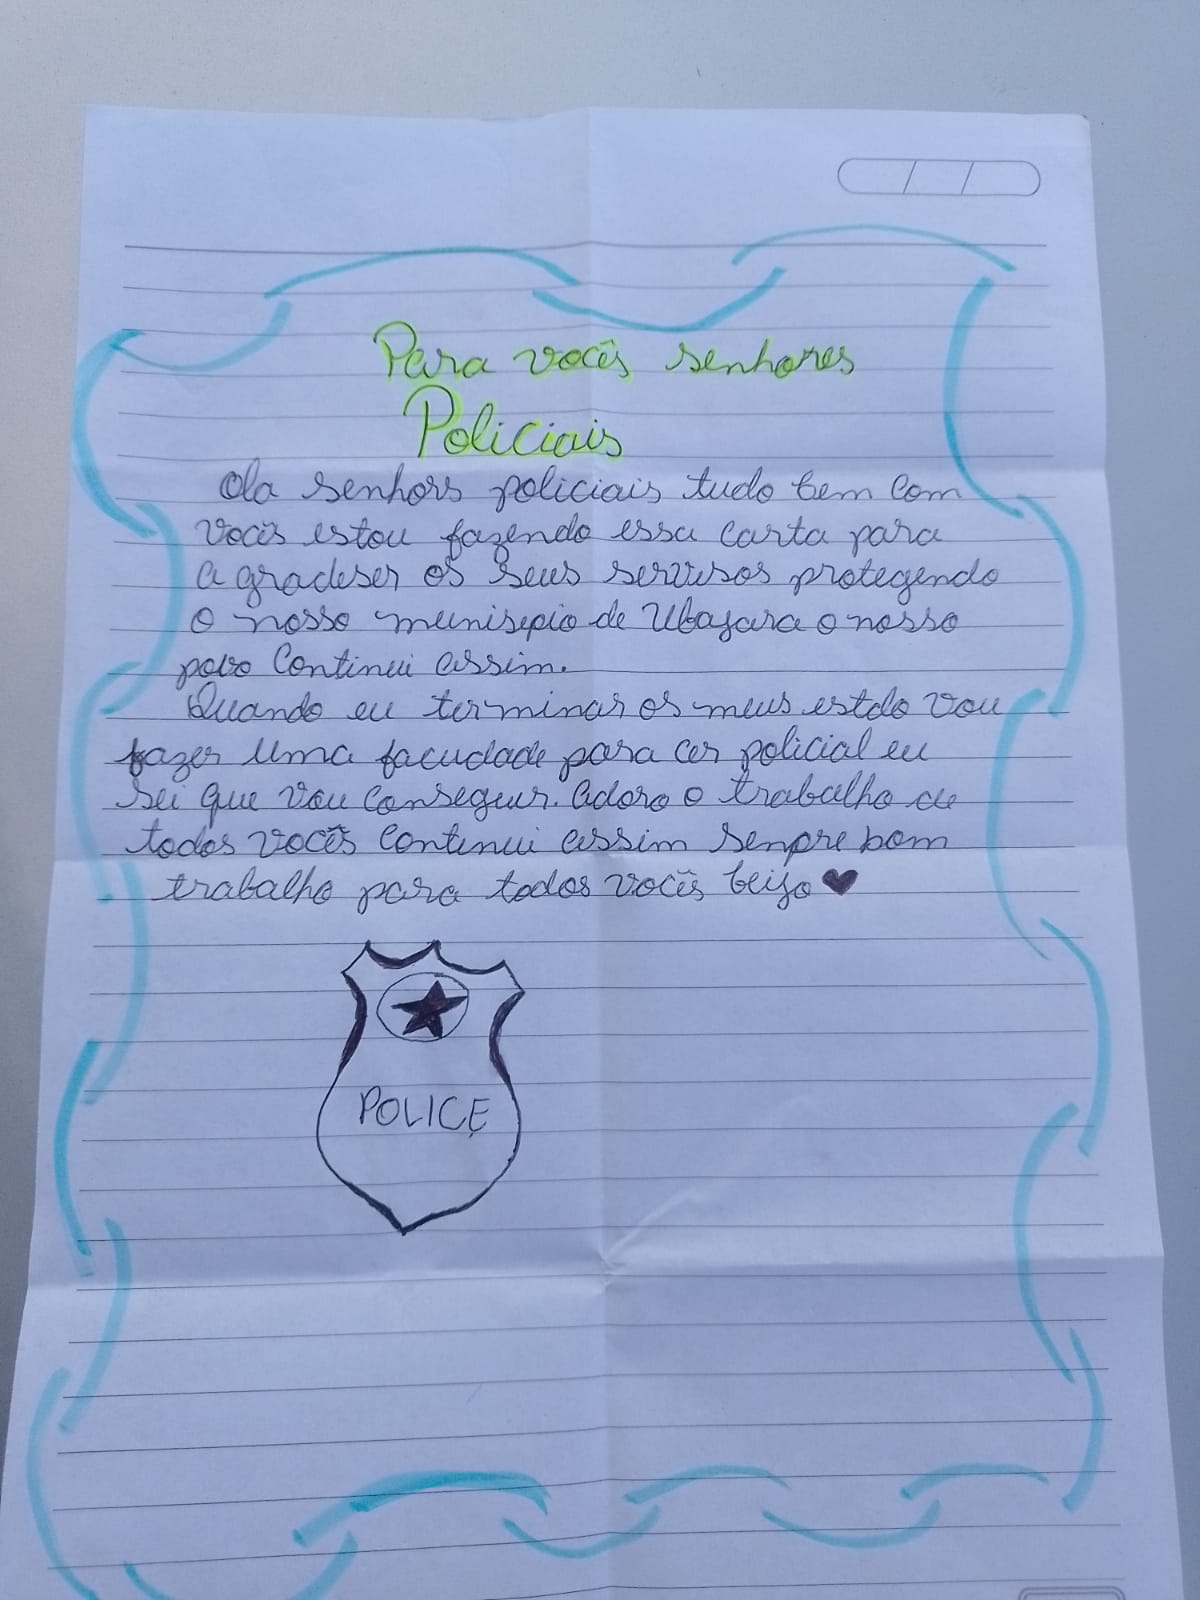 Para vocês senhores
Policiais
Ola senhors policiais tudo bem com
vocês estou fazendo essa carta para
agradeser os seus servisos protegendo
o nosso munisepio de Ubajara o nosso
povo continui assim.
Quando eu terminar os meus estdo vou
fazer uma facudade para cer policial eu
sei que vou conseguir. adoro o trabalho de
todos vocês continui assim senpre bom
trabalho para todos vocês beijo
POLICE